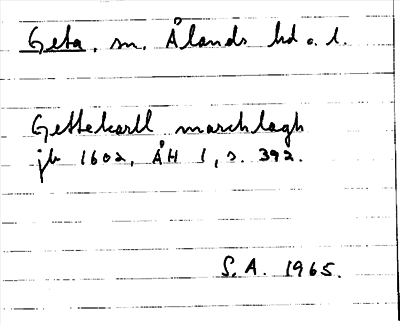 Geta, sn. Ålands hd o. l.
Gettekarll marchlagh
jb 1602, ÅH 1, s. 392.
S.A. 1965.